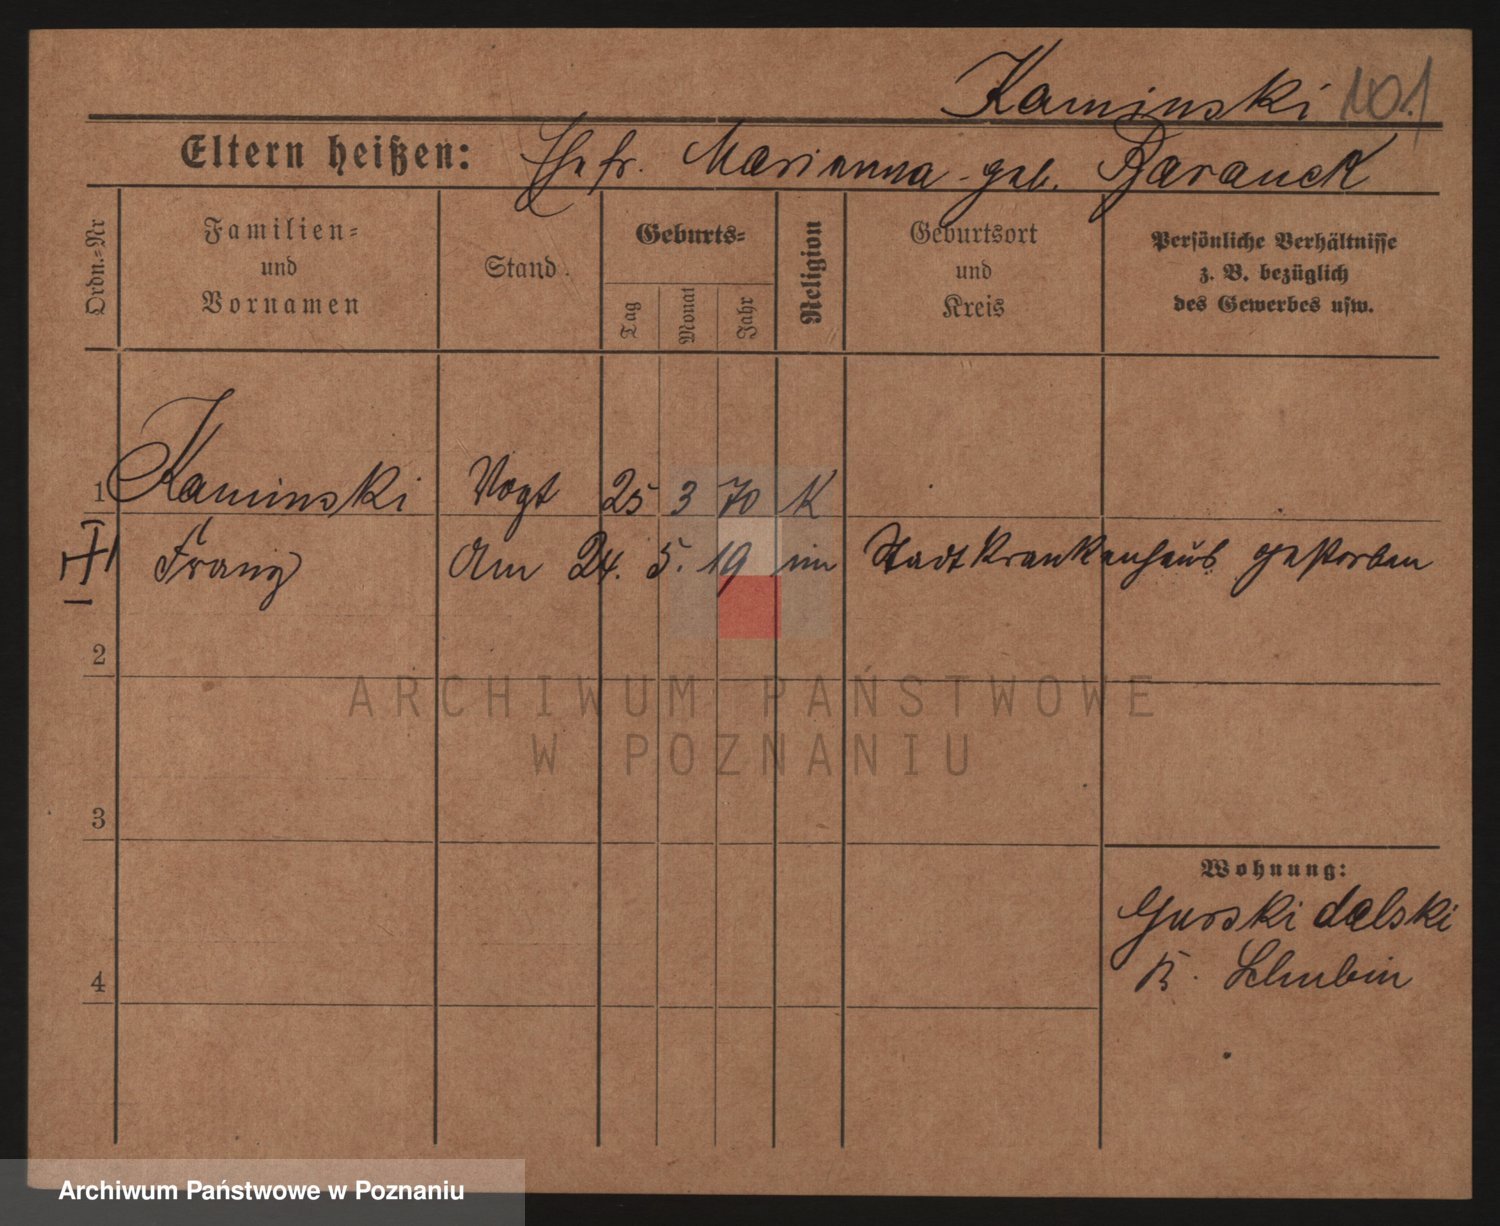 Kaminski 101
Eltern heißen: Ehefr. Marianna geb. Baranek
Ordn.-Nr
Familien-
und
Vornamen
Stand.
Geburts-
Tag
Monat
Jahr
Religion
Geburtsort
und
Kreis
Persönliche Verhältnisse
z. B. bezüglich
des Gewerbes usw.
1 Kaminski Vogt 25 3 70 K
Franz Am 24. 5. 19 im Stadtkrankenhaus gestorben
2
3
4
Wohnung:
Gurskidalski
K. Schubin
ARCHIWUM PAŃSTWOWE
W POZNANIU
Archiwum Państwowe w Poznaniu